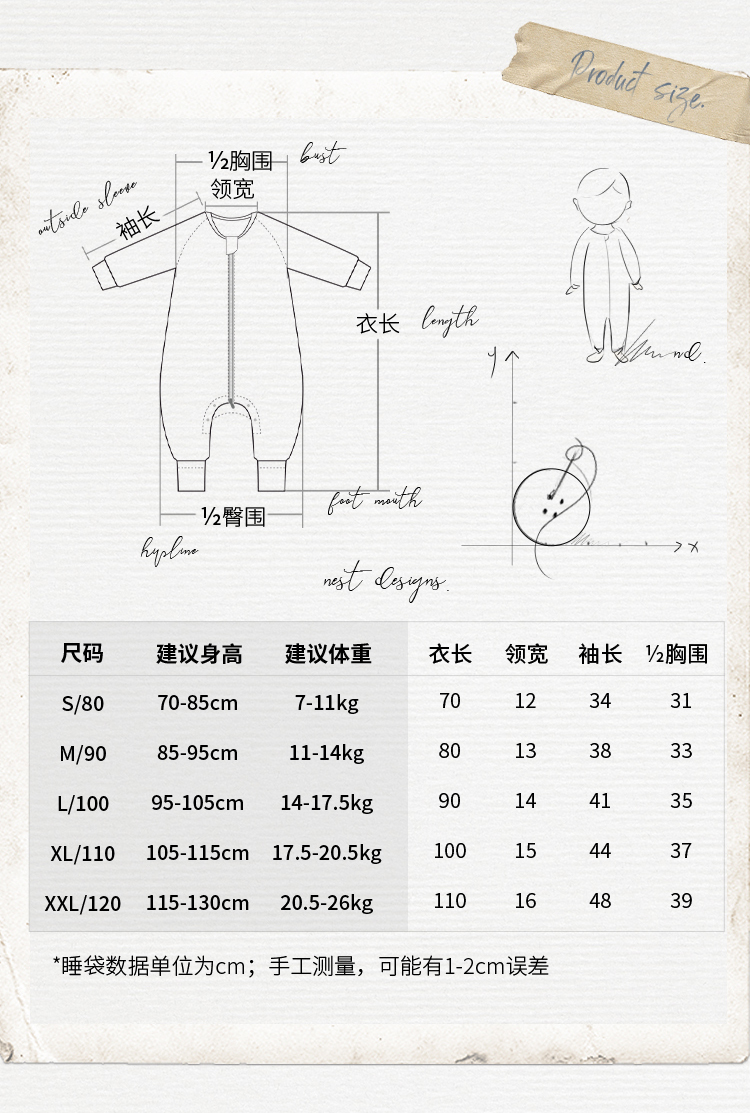 Product size.
½胸围
bust
领宽
outside sleeve
袖长
衣长
length
y
nd.
foot mouth
½臀围
hypline
x
nest designs.
尺码 建议身高 建议体重 衣长 领宽 袖长 ½胸围
S/80 70-85cm 7-11kg 70 12 34 31
M/90 85-95cm 11-14kg 80 13 38 33
L/100 95-105cm 14-17.5kg 90 14 41 35
XL/110 105-115cm 17.5-20.5kg 100 15 44 37
XXL/120 115-130cm 20.5-26kg 110 16 48 39
*睡袋数据单位为cm；手工测量，可能有1-2cm误差